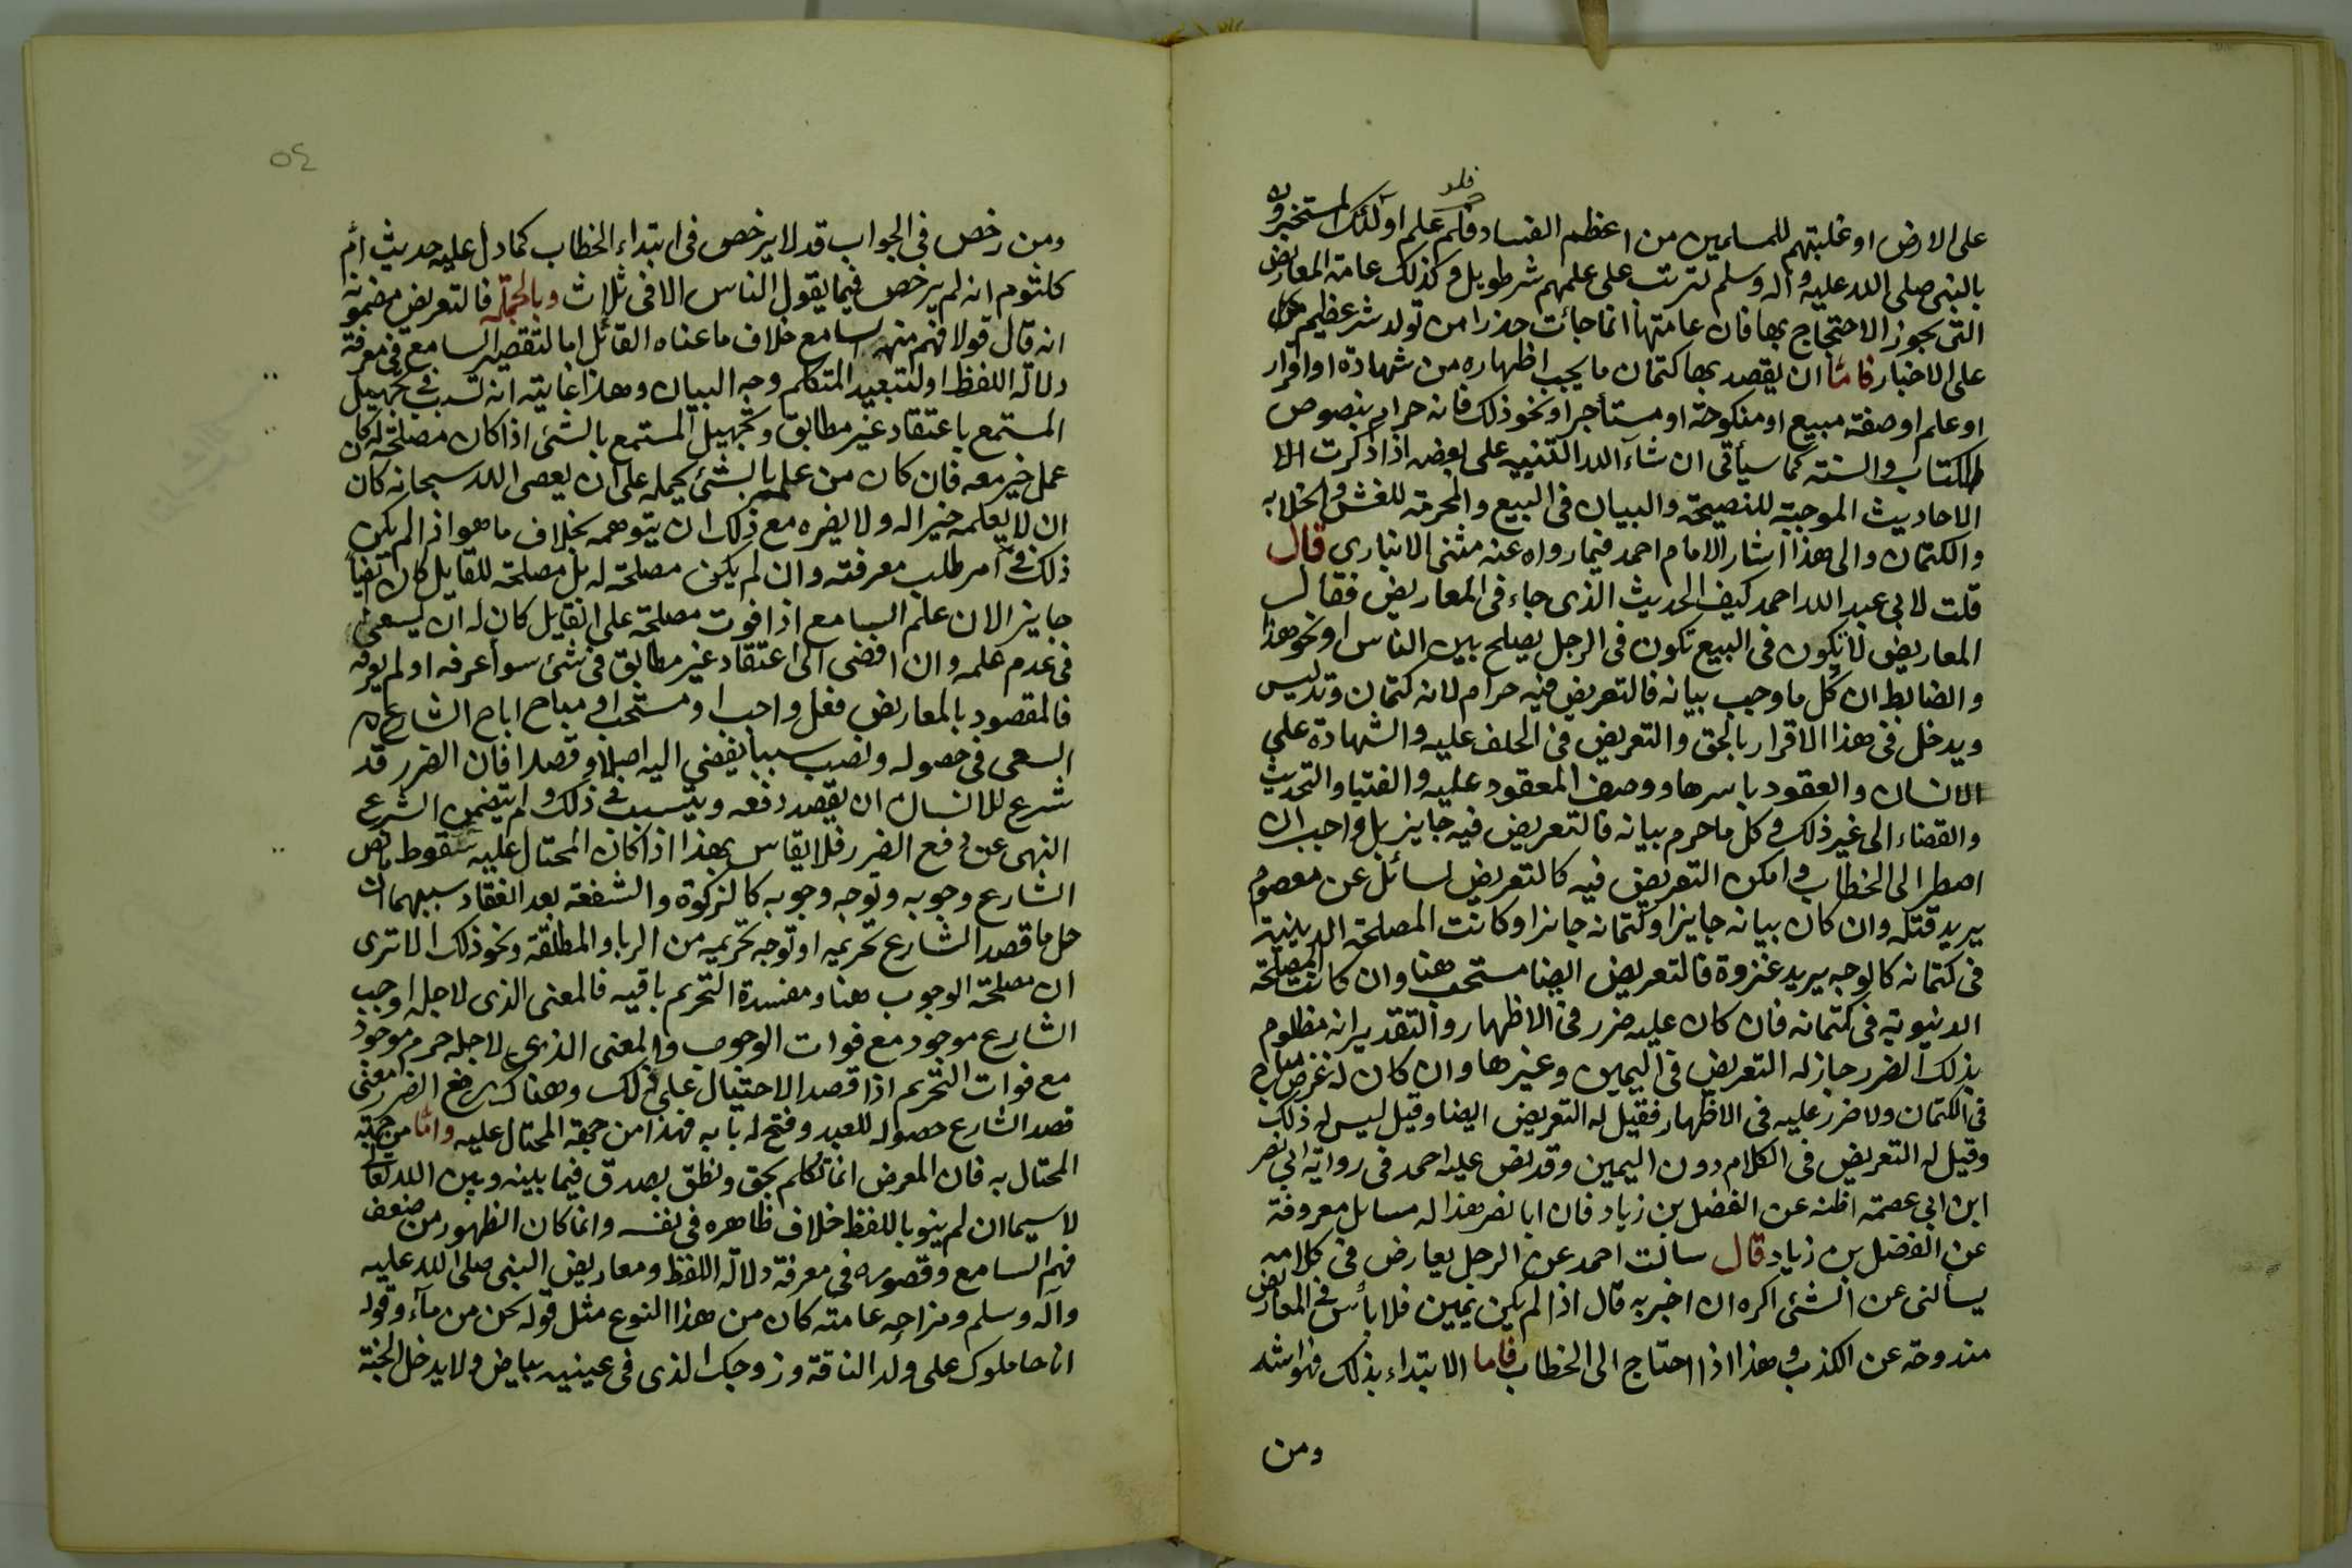 فلو
على الارض او غلبتهم للمسلمين من اعظم الفساد فلم علم اولئك المستخبرون
بالنبى صلى الله عليه وآله وسلم لترتب على علمهم شر طويل وكذلك عامة المعاريض
التى يجوز الاحتجاج بها فان عامتها انما جائت حذرا من تولد شر عظيم
على الاخبار فامّا ان يقصد بها كتمان ما يجب اظهاره من شهادة او اقرار
او علم او صفة مبيع او منكوحة او مستأجر او نحو ذلك فانه حرام بنصوص
الكتاب والسنة كما سيأتى ان شآء الله التنبيه على بعضه اذا ذكرت الا
الاحاديث الموجبة للنصيحة والبيان فى البيع والمحرمة للغش والخلابه
والكتمان والى هذا اشار الامام احمد فيما رواه عنه مثنى الانبارى قال
قلت لابى عبد الله احمد كيف الحديث الذى جاء فى المعاريض فقال
المعاريض لا تكون فى البيع تكون فى الرجل يصلح بين الناس او نحو هذا
والضابط ان كل ما وجب بيانه فالتعريض فيه حرام لانه كتمان وتدليس
ويدخل فى هذا الاقرار بالحق والتعريض فى الحلف عليه والشهادة على
الانسان والعقود باسرها ووصف المعقود عليه والفتيا والتحديث
والقضاء الى غير ذلك وكل ما حرم بيانه فالتعريض فيه جايز بل واجب ان
اضطر الى الخطاب وامكن التعريض فيه كالتعريض لسائل عن معصوم
يريد قتله وان كان بيانه جايزا وكتمانه جائزا وكانت المصلحة الدينية
فى كتمانه كالوجه يريد غزوة فالتعريض ايضا مستحب هنا وان كانت المصلحة
الدنيوية فى كتمانه فان كان عليه ضرر فى الاظهار والتقدير انه مظلوم
بذلك الضرر جاز له التعريض فى اليمين وغيرها وان كان له غرض مباح
فى الكتمان ولا ضرر عليه فى الاظهار فقيل له التعريض ايضا وقيل ليس له ذلك
وقيل له التعريض فى الكلام دون اليمين وقد نص عليه احمد فى رواية ابى نصر
ابن ابى عصمة اظنه عن الفضل بن زياد فان ابا نصر هذا له مسايل معروفة
عن الفضل بن زياد قال سالت احمد عن الرجل يعارض فى كلامه
يسألنى عن الشئ اكره ان اخبر به قال اذا لم يكن يمين فلا بأس فى المعاريض
مندوحة عن الكذب وهذا اذا احتاج الى الخطاب فاما الابتداء بذلك فهو اشد
ومن
٥٤
ومن رخص فى الجواب قد لا يرخص فى ابتداء الخطاب كما دل عليه حديث ام
كلثوم انه لم يرخص فيما يقول الناس الا فى ثلاث وبالجملة فالتعريض مضمونه
انه قال قولا فهم منه السامع خلاف ما عناه القائل اما لتقصير السامع فى معرفة
دلالة اللفظ او لتبعيد المتكلم وجه البيان وهذا غايته انه تسبب فى تجهيل
المستمع باعتقاد غير مطابق وتجهيل المستمع بالشئ اذا كان مصلحة له كان
عمل خير معه فان كان من علمه بالشئ يحمله على ان يعصى الله سبحانه كان
ان لا يعلمه خيرا له ولا يضره مع ذلك ان يتوهمه بخلاف ما هو اذا لم يكن
ذلك فى امر طلب معرفته وان لم يكن مصلحة له بل مصلحة للقايل كان ايضا
جايز الان علم السامع اذا فوت مصلحة على القايل كان له ان يسعى
فى عدم علمه وان افضى الى اعتقاد غير مطابق فى شئ سوآ عرفه او لم يعرفه
فالمقصود بالمعاريض فعل واجب او مستحب او مباح اباح الشارع
السعى فى حصوله ونصب سببا يفضى اليه اصلا وقصدا فان الضرر قد
شرع للانسان ان يقصد دفعه ويتسبب فى ذلك ولم يتضمن الشرع
النهى عن دفع الضرر فلا يقاس بهذا اذا كان المحتال عليه سقوط ما نص
الشارع وجوبه وتوجه وجوبه كالزكوة والشفعة بعد انعقاد سببهما او
حل ما قصد الشارع تحريمه او توجه تحريمه من الربا والمطلقة ونحو ذلك الا ترى
ان مصلحة الوجوب هنا ومفسدة التحريم باقيه فالمعنى الذى لاجله اوجب
الشارع موجود مع فوات الوجوب والمعنى الذى لاجله حرم موجود
مع فوات التحريم اذا قصد الاحتيال على ذلك وهناك رفع الضرر معنى
قصد الشارع حصوله للعبد وفتح له بابه فهذا من جهة المحتال عليه وامّا من جهة
المحتال به فان المعرض انما تكلم بحق ونطق بصدق فيما بينه وبين الله تعالى
لا سيما ان لم ينو باللفظ خلاف ظاهره فى نفسه وانما كان الظهور من ضعف
فهم السامع وقصوره فى معرفة دلالة اللفظ ومعاريض النبى صلى الله عليه
وآله وسلم ومزاحه عامته كان من هذا النوع مثل قوله نحن من مآء وقوله
انا حاملوك على ولد الناقة وزوجك الذى فى عينيه بياض ولا يدخل الجنة